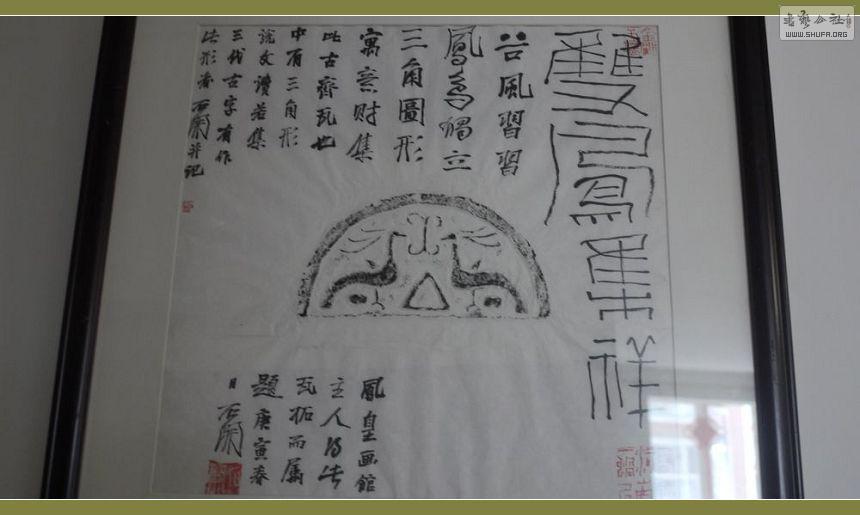 雙鳳集祥
谷風習習
鳳鳥獨立
三角圖形
寓意財集
此古齊瓦也
中有三角形
說文讀若集
三代古字有作
此形者 石并記
鳳皇画館
主人得此
瓦拓而属
題庚寅春
日 石
書藝公社
WWW.SHUFA.ORG